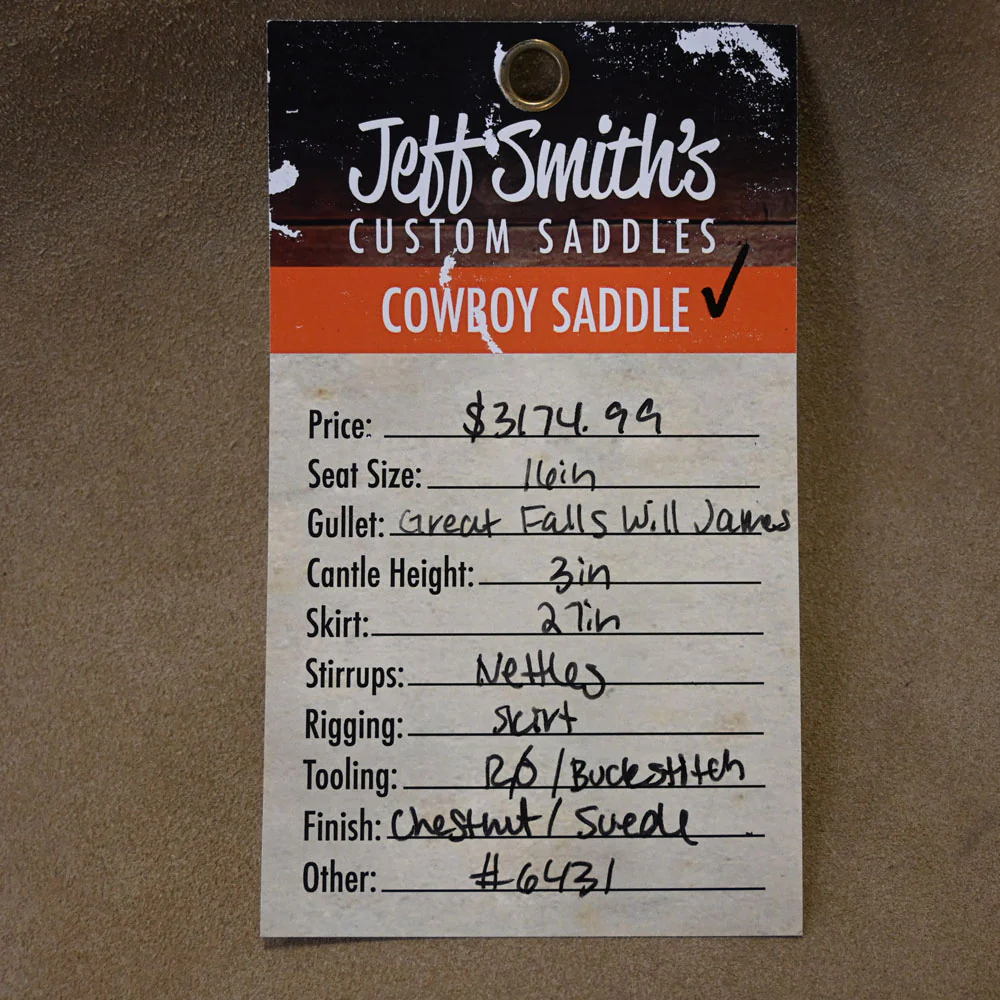 Jeff Smith's
CUSTOM SADDLES
COWBOY SADDLE ✓
Price: $3174.99
Seat Size: 16in
Gullet: Great Falls Will James
Cantle Height: 3in
Skirt: 27in
Stirrups: Nettles
Rigging: Skirt
Tooling: RO/Buckstitch
Finish: Chestnut/Suede
Other: #6431